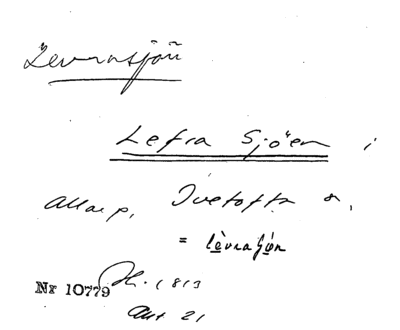 Levrasjön
Lefra Sjöen i
Allarp, Ivetofta s,
= lèvraʃö́n
Nr 10779 1813
Akt 21